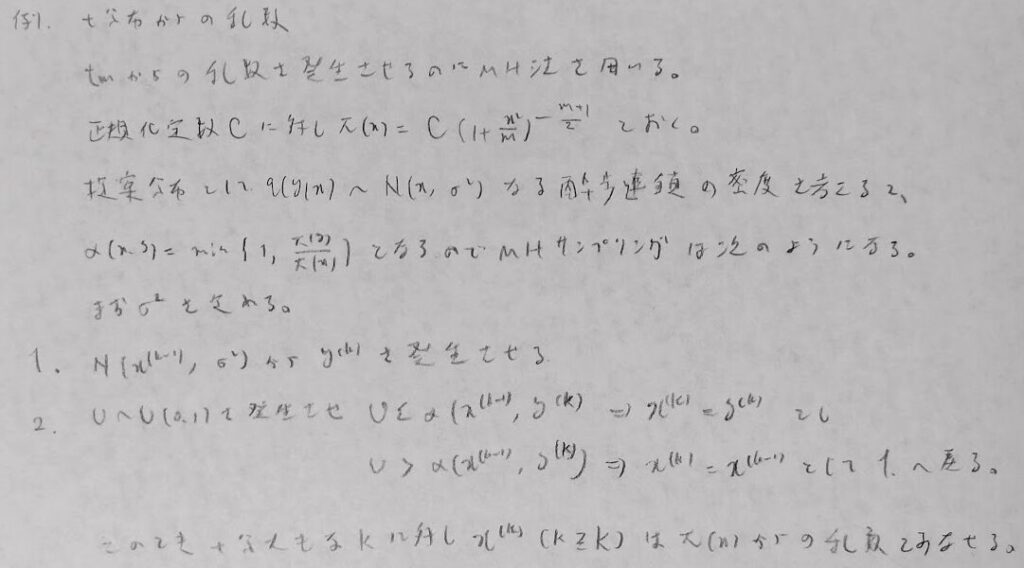 例. t分布からの乱数
tmからの乱数を発生させるのにMH法を用いる。
正規化定数Cに対しπ(x) = C(1+x²/m)^{-(m+1)/2} とおく。
提案分布としてq(y|x) ~ N(x, σ²) なる酔歩連鎖の密度を考えると、
α(x,y) = min{1, π(y)/π(x)} となるのでMHサンプリングは次のようになる。
まずσ²を定める。
1. N(x^(k-1), σ²) から y^(k) を発生させる
2. U~U(0,1)を発生させ U≦α(x^(k-1), y^(k)) ⇒ x^(k) = y^(k) とし
U > α(x^(k-1), y^(k)) ⇒ x^(k) = x^(k-1) として 1. へ戻る。
このとき十分大きなKに対し x^(k) (k≧K) は π(x) からの乱数とみなせる。